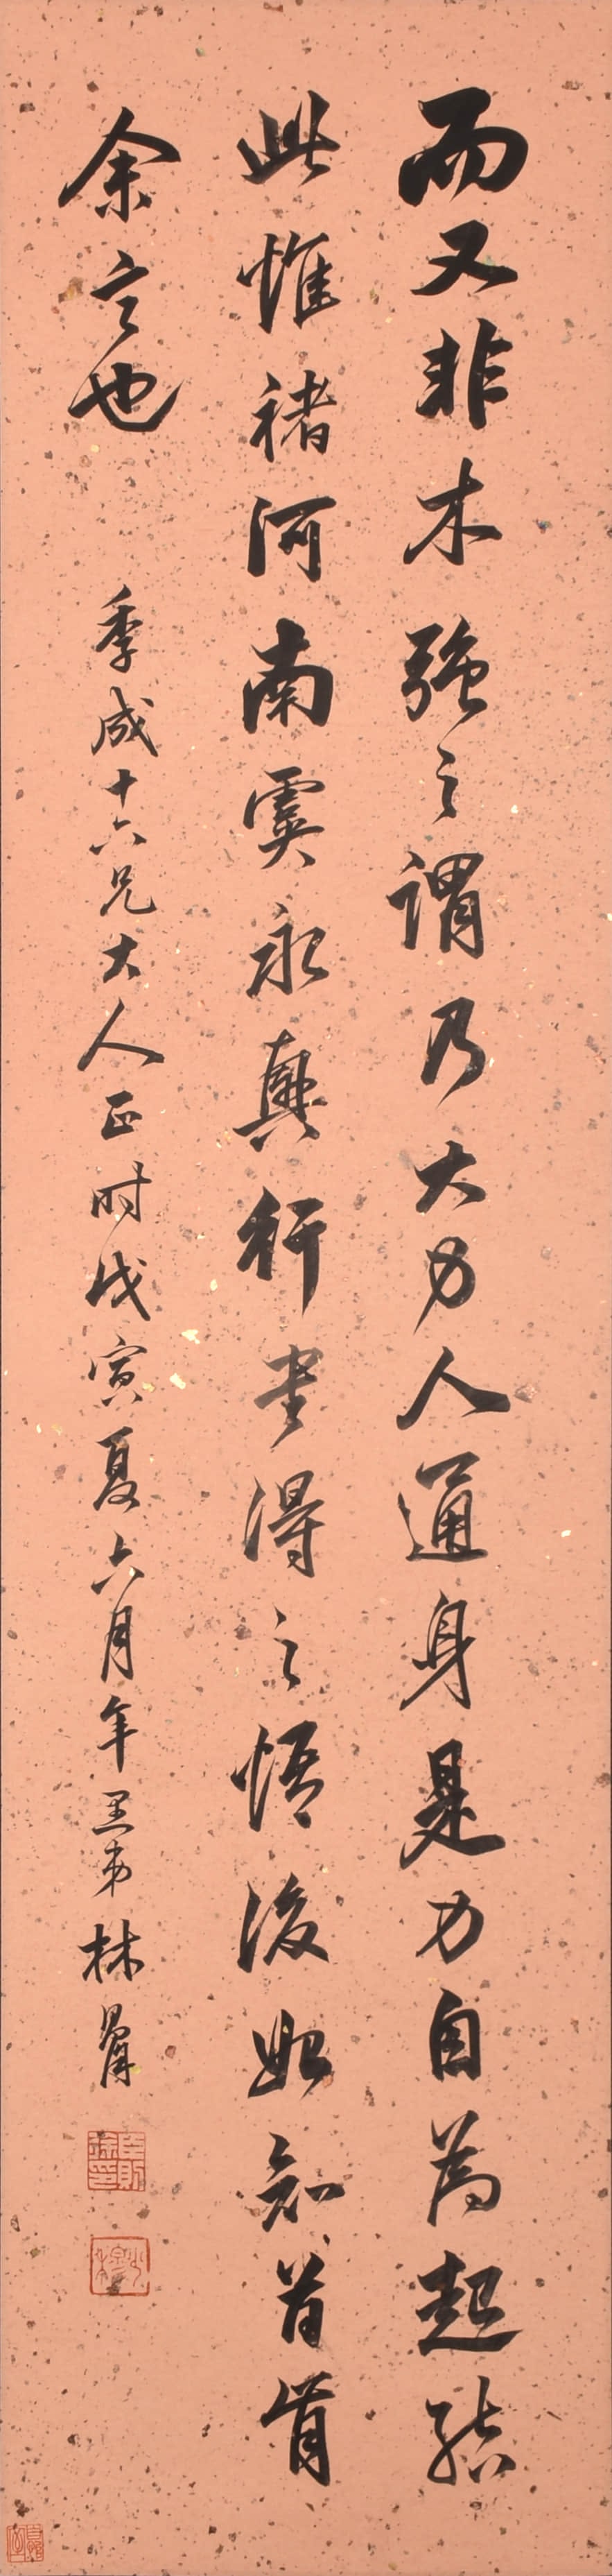 而又非木强之谓乃大力人通身是力自为起结
此惟褚河南虞永兴行书得之悟后始知首肯
余言也 季成十六兄大人正时戊寅夏六月年黑弟林